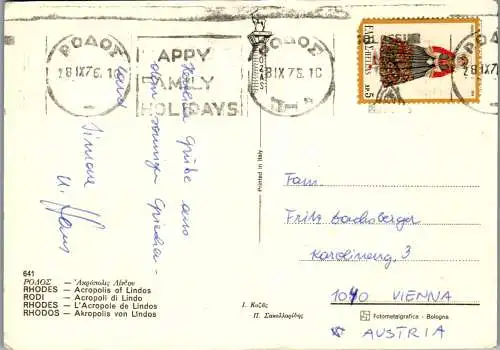 ΡΟΔΟΣ
HAPPY
FAMILY
HOLIDAYS
ΡΟΔΟΣ
ΕΛΛΑΣ HELLAS
ΔΡ. 5
Herzliche Grüße aus
dem sonnigen Griechen-
land
Simone
u. Hans
Printed in Italy
Fam.
Fritz
Karolineng. 3
1040 VIENNA
AUSTRIA
641
ΡΟΔΟΣ — Ἀκρόπολις Λίνδου
RHODES — Acropolis of Lindos
RODI — Acropoli di Lindo
RHODES — L'Acropole de Lindos
RHODOS — Akropolis von Lindos
Π. Σακελλαρίδης
Fotometalgrafica - Bologna